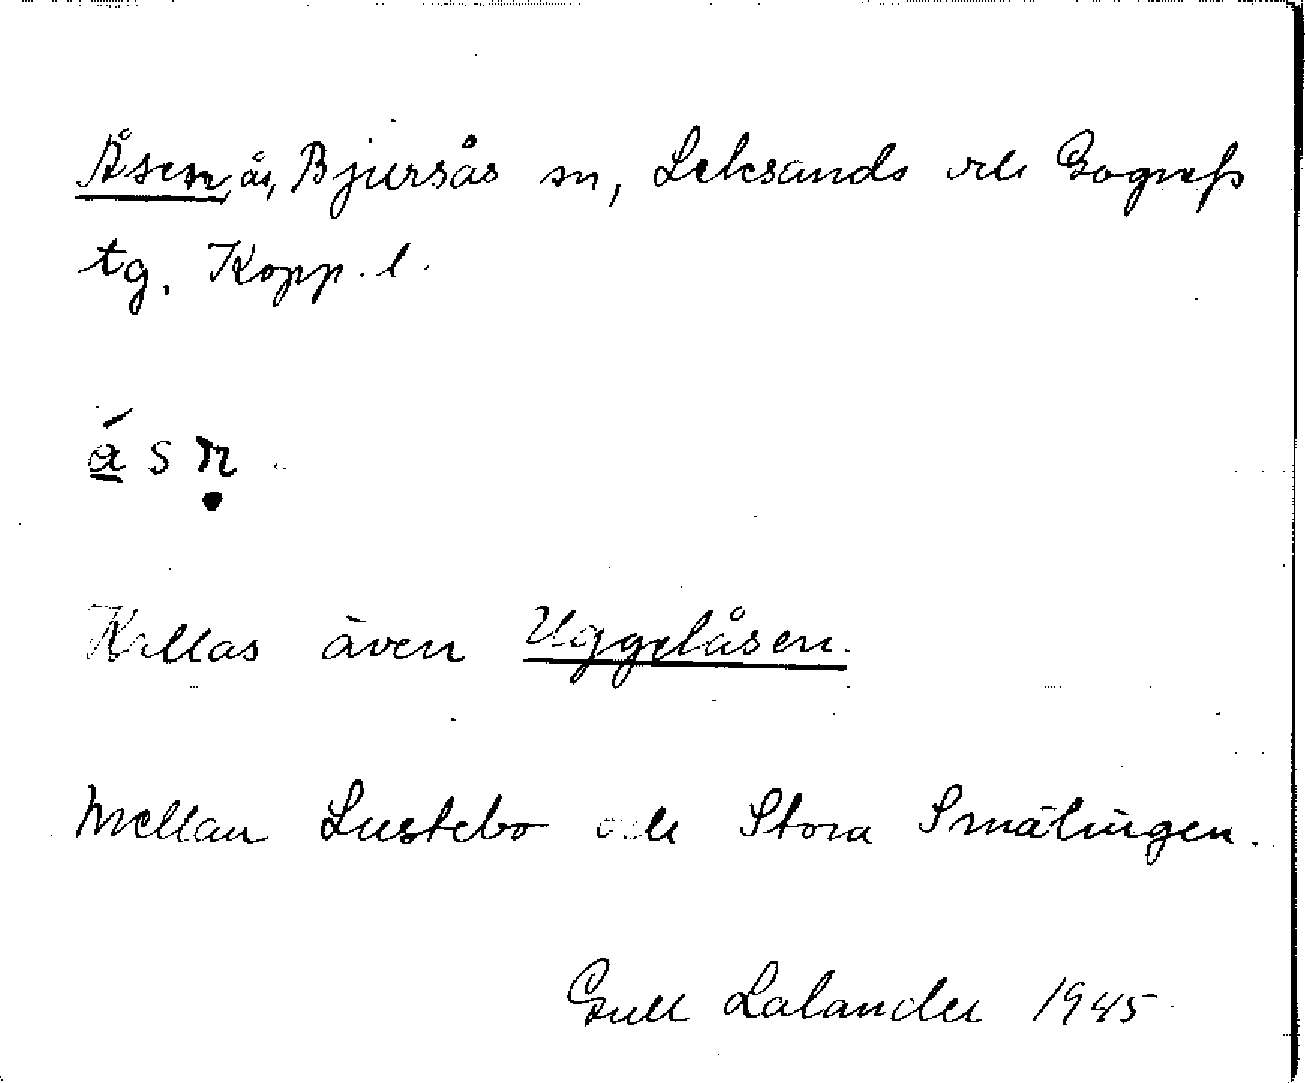 Åsen, ås, Bjursås sn, Leksands och Gagnefs
tg. Kopp. l.
á̱ s ṇ
Kallas även Uggelåsen.
Mellan Lustebo och Stora Smälingen.
Gull Lalander 1945